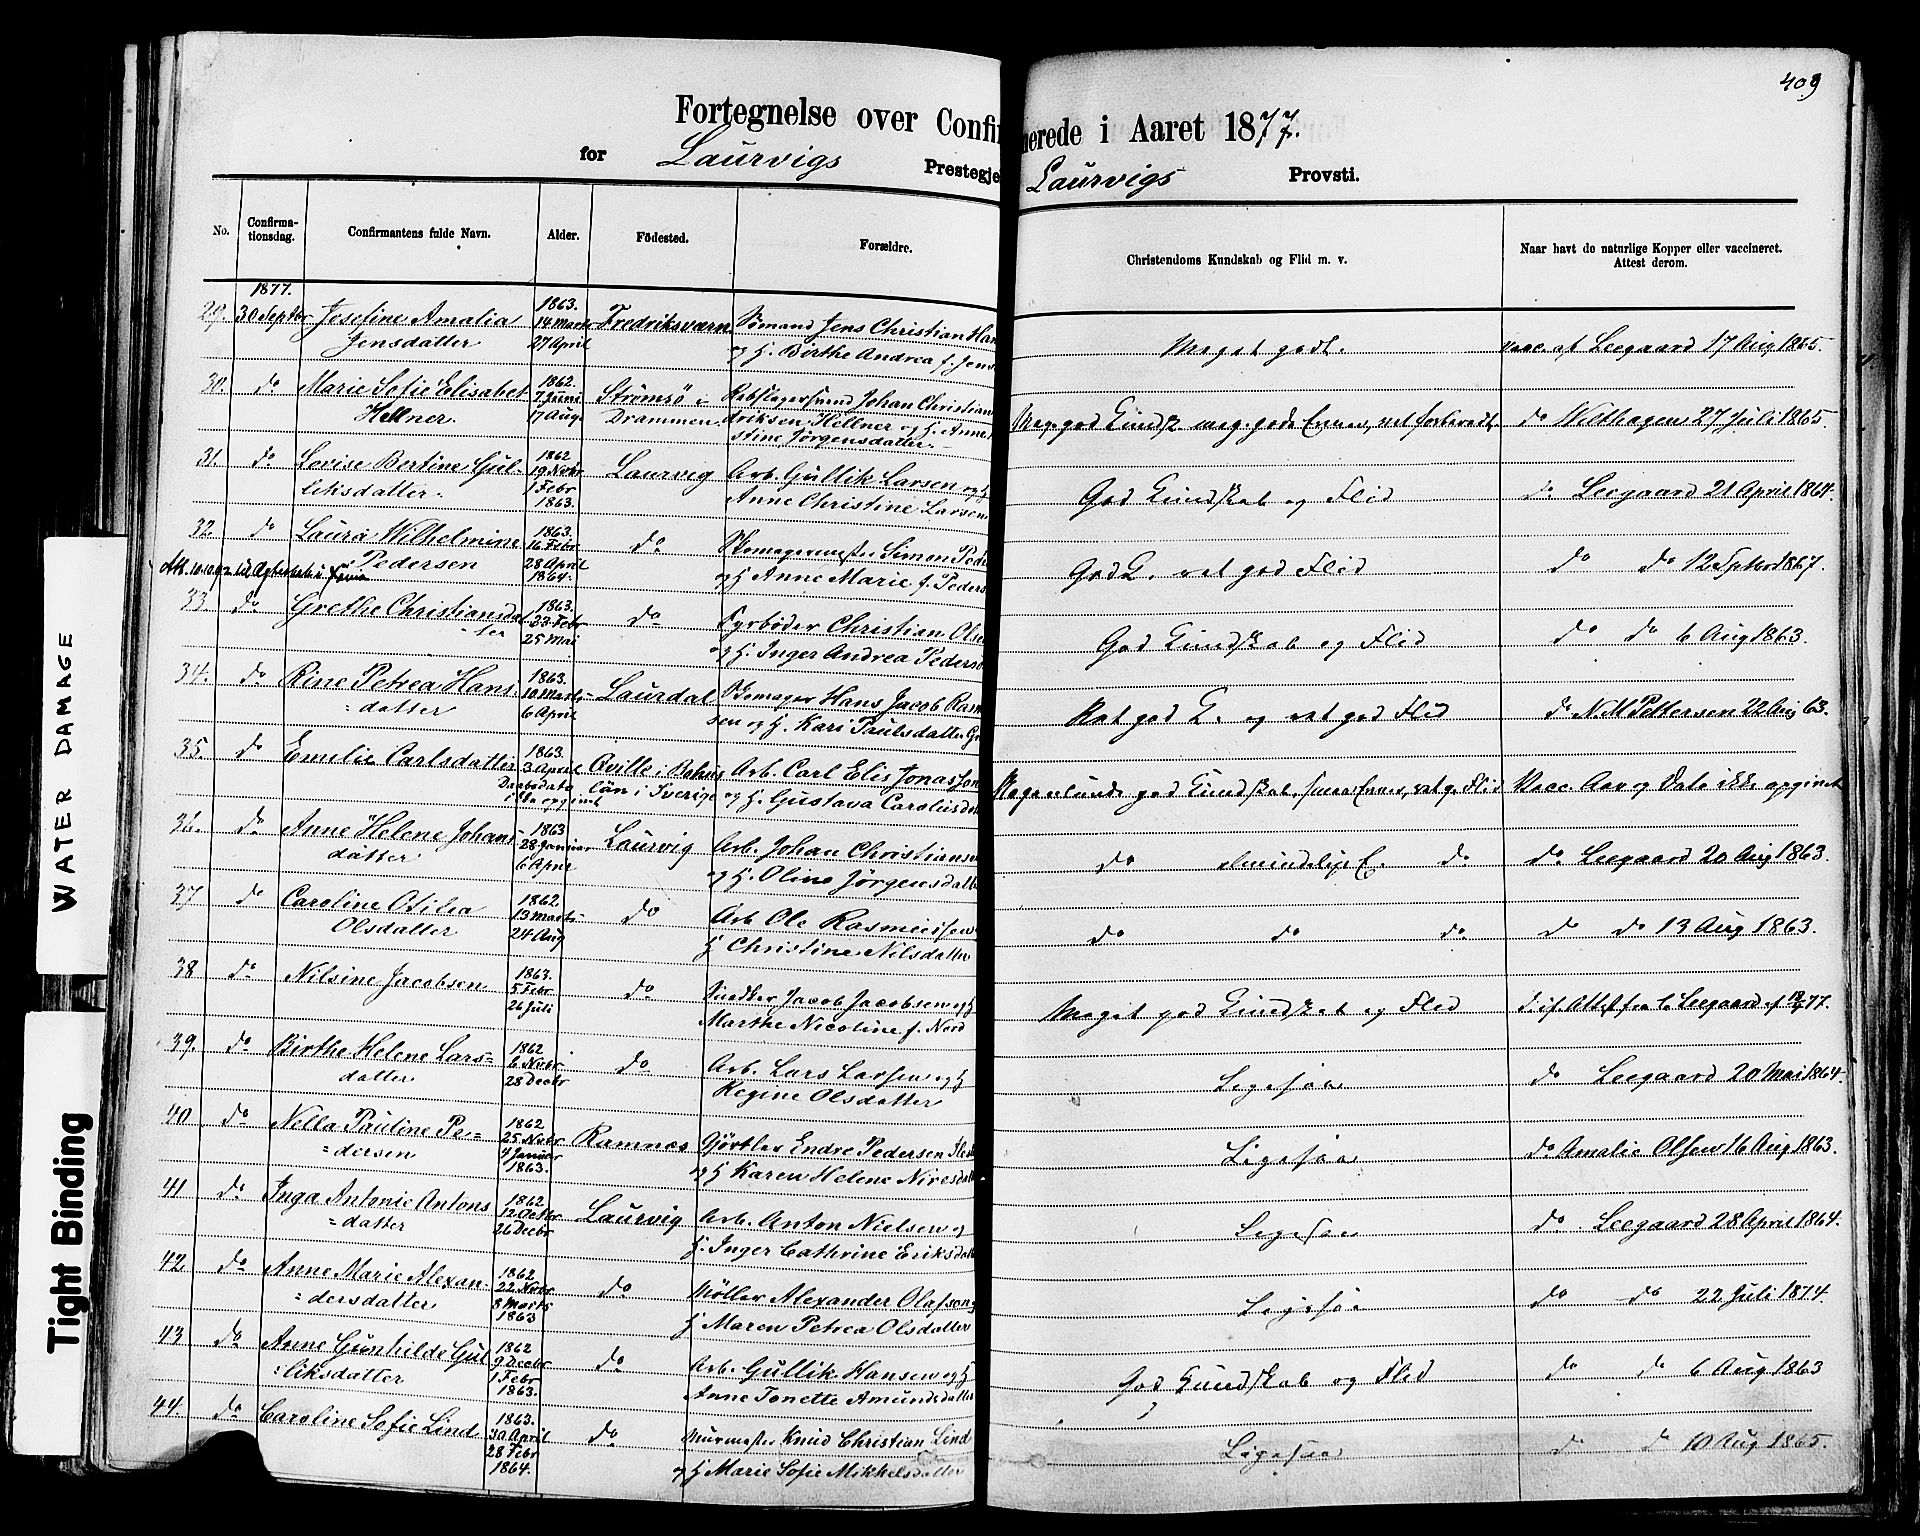 409
Fortegnelse over Confirmerede i Aaret 1877.
for Laurvigs Prestegje Laurvigs Provsti.
No. Confirma-tionsdag. Confirmantens fulde Navn. Alder. Födested. Forældre. Christendoms Kundskab og Flid m. v. Naar havt de naturlige Kopper eller vaccineret. Attest derom.
1877.
29. 30 Septbr Josefine Amalia 1863. 14 Marts Fredriksværn Sømand Jens Christian Han
Jensdatter 27 April og H. Birthe Andrea f. Jens Meget godt. vacc. af Leegaard 17 Aug 1865.
30. do Marie Sofie Elisabet 1862. 7 Juni Strömsö i Rebslagersvend Johan Christian
Hellner. 17 Aug. Drammen driksen Hellner og H. Anne
stine Jørgensdatter. Meg. god Kundsk. meg. gode Evner, vel forberedt. do Wilhagen 27 Juli 1865.
31. do Lovise Bertine Gul- 1862 19 Novbr Laurvig Arb. Gullik Larsen og H
liksdatter. 1 Febr 1863. Anne Christine Larsen God Kundskab og Flid do Leegaard 21 April 1864.
32. do Laura Wilhelmine 1863. 16 Febr do Skomagermester Simon Peder
Pedersen 28 April 1864. og H Anne Marie f. Peders God K. vel god Flid do do 12 Sptbr 1867.
33 do Grethe Christiansdat 1863. 23 Febr do Fyrbøder Christian Olse
-ter 25 Mai og H. Inger Andrea Pederso God Kundskab og Flid do do 6 Aug 1863.
34. do Rine Petrea Hans 1863. 10 Marts Laurdal Skomager Hans Jacob Rasm
=datter 6 April sen og H. Kari Paulsdatter Vel god K. og vel god Flid do N. M Pettersen 22 Aug 63.
35. do Emelie Carlsdatter 1863. 3 April Qville i Bohus Arb. Carl Elis Jonasson
Daabsdato ikke opgivet län i Sverige og H. Gustava Carolusdat Nogenlunde god Kundskab, smaa Evner, vel g. Flid Vacc. Aar og Dato ikke opgivet
36. do Anne Helene Johans 1863 28 Januar Laurvig Arb. Johan Christiansen
datter 6 April og H. Oline Jörgensdatte do almindelige E. do do Leegaard 20 Aug 1863.
37 do Caroline Otilia 1862. 13 Marts do Arb Ole Rasmussen
Olsdatter 24 Aug H Christine Nilsdatter do do do do do 13 Aug 1863.
38 do Nilsine Jacobsen 1863. 5 Febr do Snedker Jacob Jacobsen og H
26 Juli Marthe Nicoline f. Nord Meget god Kundskab og Flid
39. do Birthe Helene Lars= 1862 6 Novbr do Arb. Lars Larsen og H
datter 28 Decbr Regine Olsdatter Ligesaa do Leegaard 20 Mai 1864.
40 do Nella Pauline Pe= 1862 25 Novbr Ramnæs Gjörtler Endre Pedersen
=dersen 7 Januar 1863. og H Karen Helene Ligesaa do Amalie Olsen 16 Aug 1863.
41 do Inga Antonie Antons 1862 12 Octbr Laurvig Arb. Anton Nielsen og
=datter 26 Decbr H. Inger Cathrine Eriksdatt Ligesaa do Leegaard 28 April 1864.
42 do Anne Marie Alexan- 1862 22 Novbr do Møller Alexander Olafsen og
=dersdatter 8 Marts 1863 H Maren Petrea Olsdatter Ligesaa do do 22 Juli 1874.
43 do Anne Gunhilde Gul 1862 9 Decbr do Arb. Gullik Hansen og H
=liksdatter 1 Febr 1863. Anne Tonette Amundsdatter God Kundskab og Flid do do 6 Aug 1863
44. do Caroline Sofie Lind 1863. 30 April do Murmester Knud Christian Lind
28 Febr 1864. og H Marie Sofie Mikkelsdatter Ligesaa do do 10 Aug 1865.
WATER DAMAGE
Tight Binding